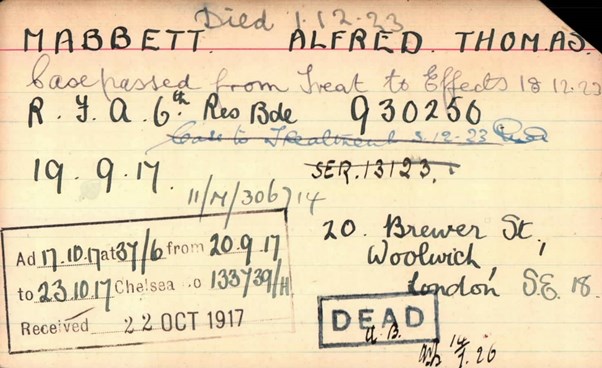 Died 1.12.23
MABBETT. ALFRED. THOMAS.
Case passed from Treat to Effects 18 12.23
R. F. A. 6th Res Bde 930250
Case to Treatment 3.12.23
19. 9. 17. SER. 13123.
11/M/306714
20. Brewer St,
Woolwich,
London, S.E. 18.
Ad 17.10.17 at 37/6 from 20.9.17
to 23.10.17 Chelsea No 133739/H
Received 22 OCT 1917
DEAD